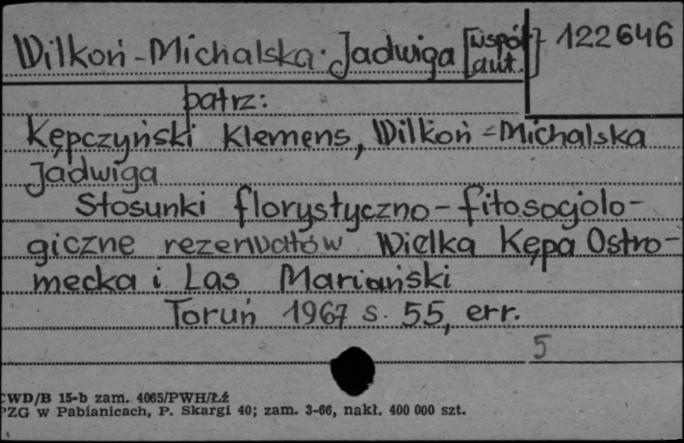 Wilkoń-Michalska Jadwiga [współ 122646
aut.]
patrz:
Kępczyński Klemens, Wilkoń-Michalska
Jadwiga
Stosunki florystyczno-fitosocjolo-
giczne rezerwatów Wielka Kępa Ostro-
mecka i Las Mariański
Toruń 1967 s. 55, err.
5
CWD/B 15-b zam. 4065/PWH/Łź
PZG w Pabianicach, P. Skargi 40; zam. 3-66, nakł. 400 000 szt.